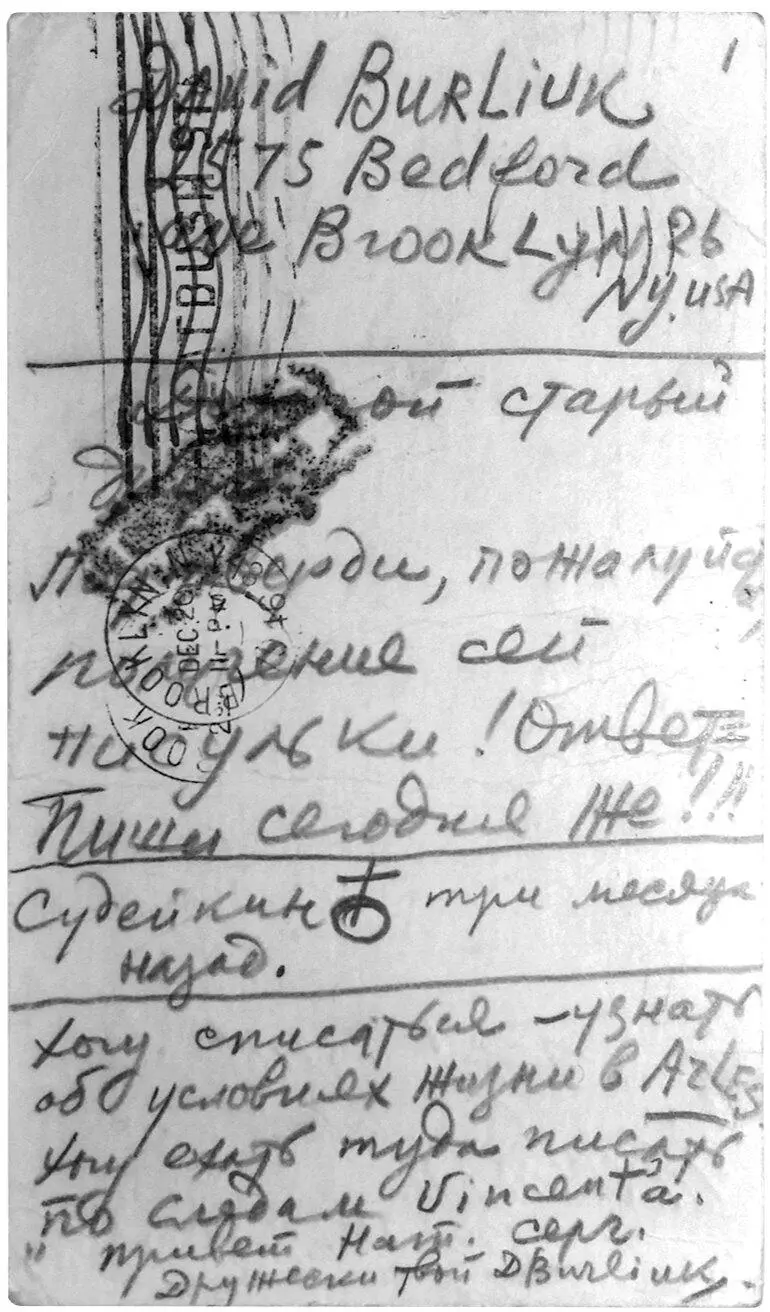 1
David BURLIUK
2575 Bedford
ave BROOKLyn 26
Ny. USA
FLATBUSH STA
старый
Подтверди, пожалуйста,
BROOKLYN, N.Y.
DEC 20
1946
получение сей
писульки! Ответ
Пиши сегодня же!!!
Судейкин ♁ три месяца
назад.
Хочу списаться – узнать
об условиях жизни в ArLes
Хочу ехать туда писать
по следам Vincentа.
" привет Нат. серг.
Дружески твой DBurliuk.